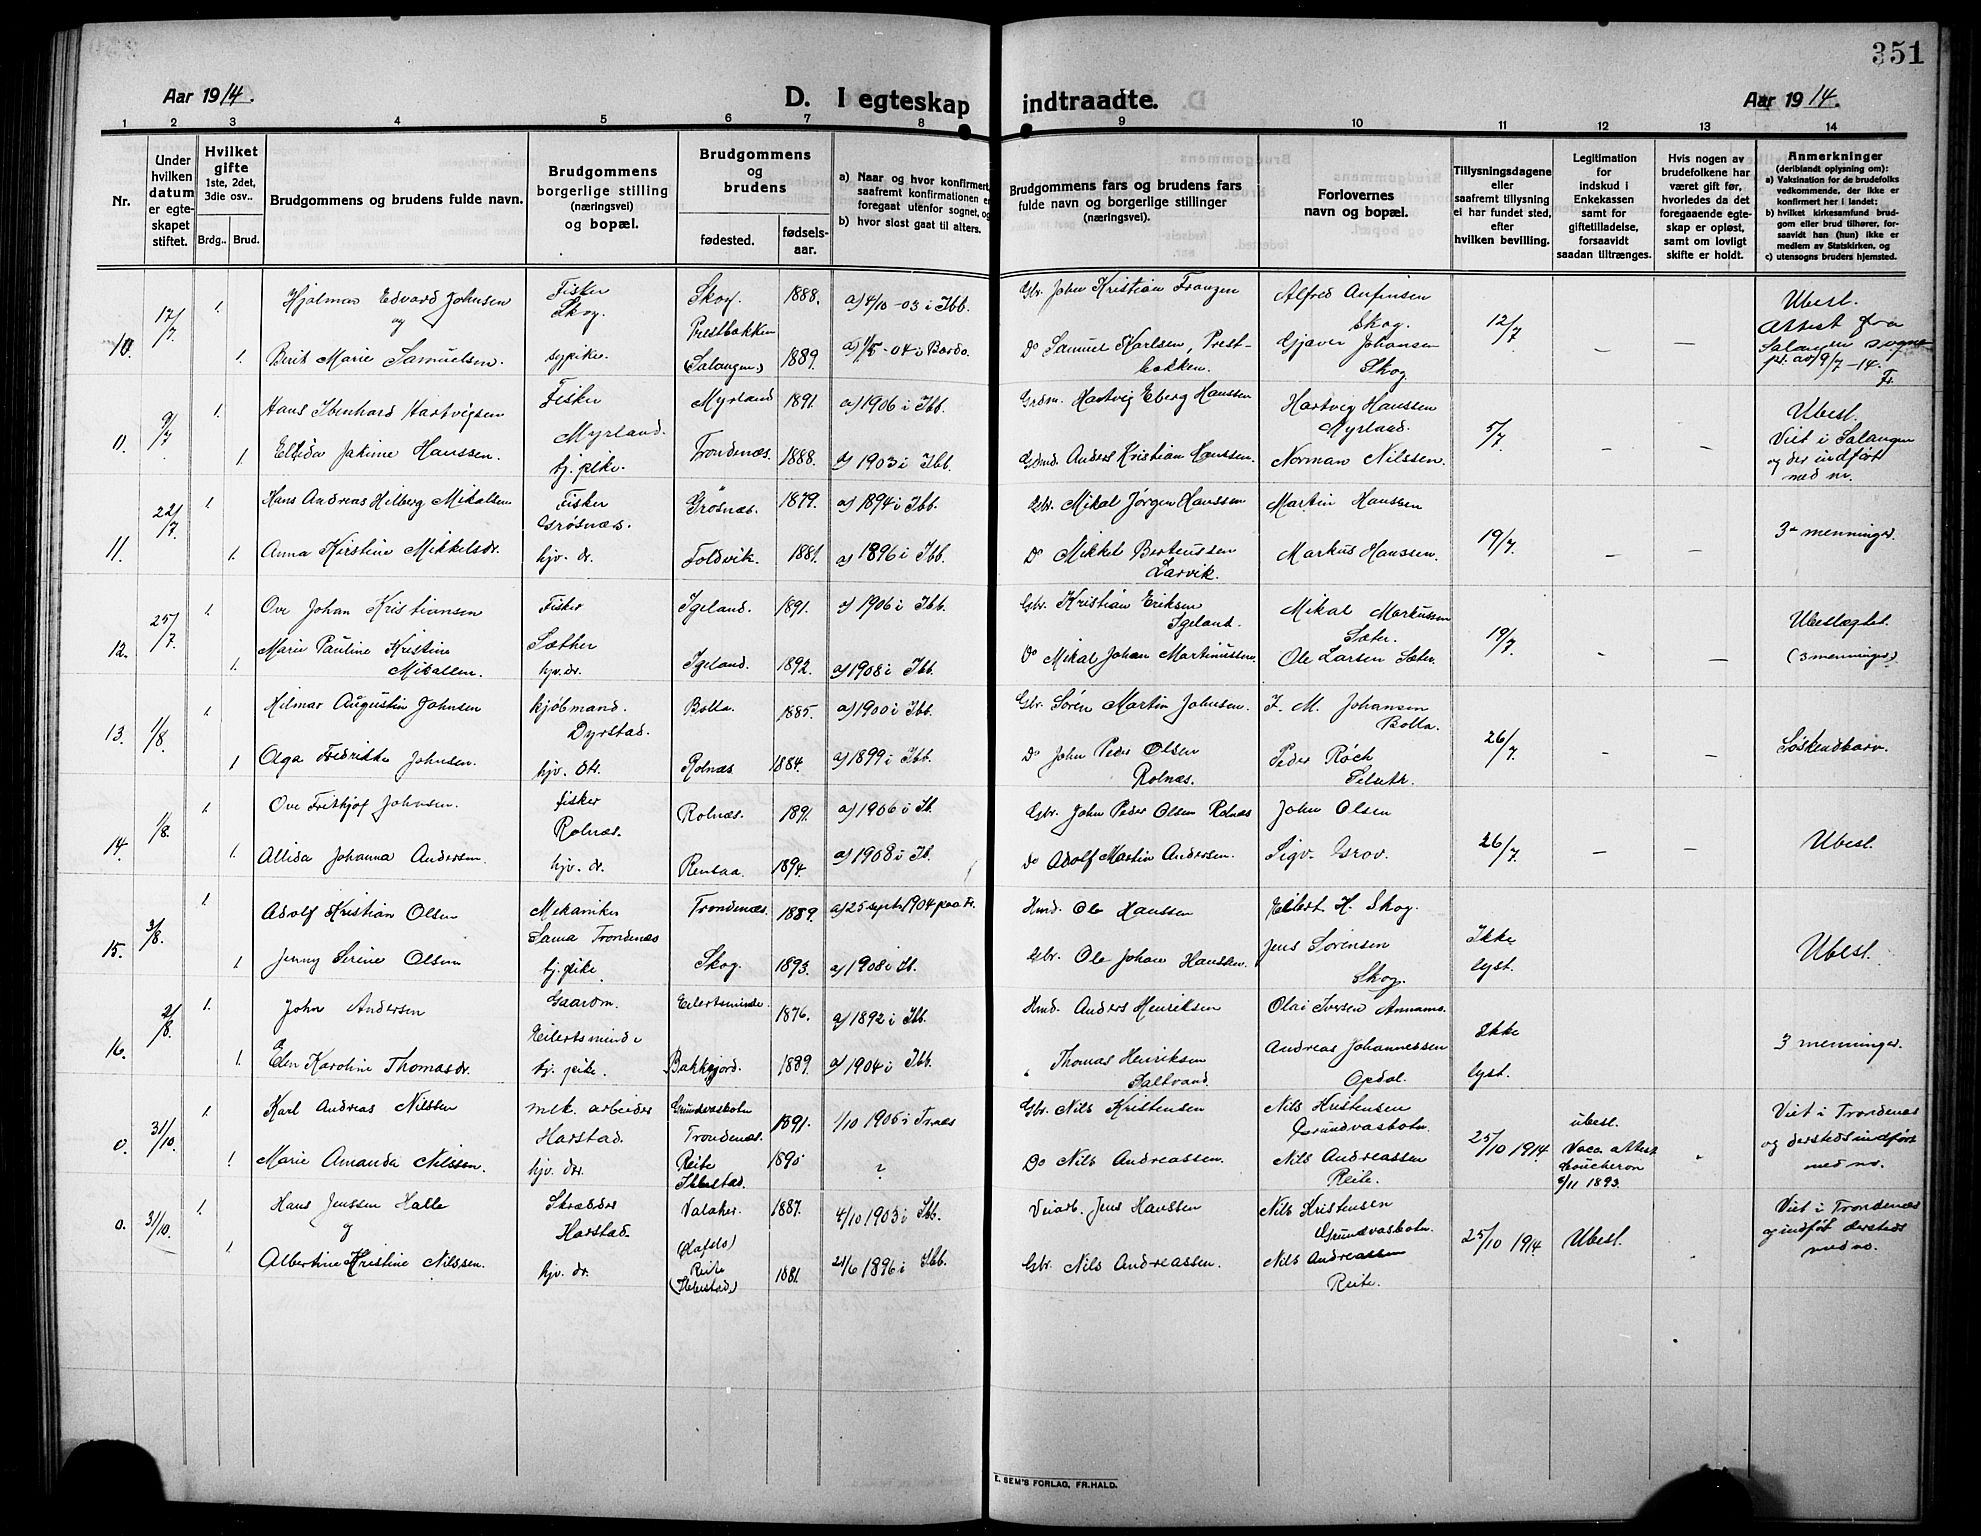 351
Aar 1914.
D. I egteskap indtraadte.
Aar 1914.
1 2 3 4 5 6 7 8 9 10 11 12 13 14
Nr.
Under hvilken datum er egteskapet stiftet.
Hvilket gifte 1ste, 2det, 3die osv..
Brdg.. Brud.
Brudgommens og brudens fulde navn.
Brudgommens borgerlige stilling (næringsvei) og bopæl.
Brudgommens og brudens
fødested.
fødselsaar.
a) Naar og hvor konfirmert, saafremt konfirmationen er foregaat utenfor sognet, og
b) hvor sidst gaat til alters.
Brudgommens fars og brudens fars fulde navn og borgerlige stillinger (næringsvei).
Forlovernes navn og bopæl.
Tillysningsdagene eller saafremt tillysning ei har fundet sted, efter hvilken bevilling.
Legitimation for indskud i Enkekassen samt for giftetilladelse, forsaavidt saadan tiltrænges.
Hvis nogen av brudefolkene har været gift før, hvorledes da det foregaaende egteskap er opløst, samt om lovligt skifte er holdt.
Anmerkninger
(deriblandt oplysning om):
a) Vaksination for de brudefolks vedkommende, der ikke er konfirmert her i landet:
b) hvilket kirkesamfund brudgom eller brud tilhører, forsaavidt han (hun) ikke er medlem av Statskirken, og
c) utensogns bruders hjemsted.
10. 17/7 1. Hjalmar Edvard Johnsen Fisker Skog. Skog. 1888. a) 4/10-03 i Ibb. Gbr. John Kristian Franzen Alfred Skog. 12/7 Ubesl.
og
1. Berit Marie Samuelsen. sypike. Prestbakken (Salangen) 1889. -04 i Bardo. Do Samuel Karlsen, Prestbakken. Gjæver Johansen Skog. – – Attest fra Salangen sognepr. av 9/7-14. Fr.
11. 9/7 1. Hans Ibenhard Hartvigsen Fisker Myrland. Myrland 1891. a) 1906 i Ibb. Grdm. Hartvig Eberg Hanssen Hartvig Hanssen Myrland. 5/7 Ubesl.
1. Ellida Jakime Hanssen. tj. pike. Trondenæs. 1888. a) 1903 i Ibb. Grdmd. Anders Kristian Hanssen. Norman Nilssen. – – Viet i Salangen og der indført med nr.
11. 22/7 1. Hans Andreas Hilberg Mikalsen Fisker Grøsnæs. Grøsnæs. 1879. a) 1894 i Ibb. Gbr. Mikal Jørgen Hanssen Martin Hanssen 19/7. 3-menninger.
1. Anna Kirstine Mikkelsdr. hjv. dr. Foldvik. 1881. a) 1896 i Ibb. Do Mikkel Berteussen Larvik. Markus Hanssen. – –
12. 25/7. 1. Ove Johan Kristiansen Fisker Sæther Igeland. 1891. a) 1906 i Ibb. Gbr. Kristian Eriksen Igeland. Mikal Markussen Sæter. 19/7. Ubeslægtet.
1. Marie Pauline Kristine Mikalsen. hjv. dr. Igeland. 1892. a) 1908 i Ibb. Do Mikal Johan Martinussen. Ole Larsen Sæter. – – (3 menninger).
13. 1/8 1. Hilmar Augustin Johnsen kjøbmand. Dyrstad. Bolla. 1885. a) 1900 i Ibb. Gbr. Søren Martin Johnsen. J. M. Johansen Bolla. 26/7 Søskendbarn.
1. Olga Fredrikke Johnsen. hjv. dtr. Rolnæs 1884. a) 1899 i Ibb. Do John Peder Olsen Rolnæs. Peder Røch Selseth. – –
14. 1/8. 1. Ove Frithjof Johnsen. fisker Rolnæs. Rolnæs. 1891. a) 1906 i Ib. Gbr. John Peder Olsen Rolnæs John Olsen 26/7. Ubesl.
1. Allida Johanna Andersen. hjv. dr. Rensaa. 1894. a) 1908 i Ib. Do Adolf Martin Andersen. Sigv. Grov. – –
15. 3/8. 1. Adolf Kristian Olsen Mekaniker Sama Trondenæs Trondenæs. 1889. a) 25 septr 1904 paa Tr. Hmd. Ole Hanssen Eilert H. Skog. Ikke lyst. Ubesl.
1. Jenny Serine Olsen tj. pike. Skog. 1893. a) 1908 i Ib. Gbr. Ole Johan Hanssen. Jens Sørensen Skog.
16. 2/8. 1. John Andersen Gaardm. Eilertsminde Eilertsminde 1876. a) 1892 i Ibb. Hmd. Anders Henriksen Olai Iversen Ikke lyst. 3 menninger.
1. Elen Karoline Thomasdr. tj. pike. Bakkejord. 1889. a) 1904 i Ibb. " Thomas Henriksen Saltvand. Andreas Johannessen Opdal.
0. 31/10. 1. Karl Andreas Nilssen mek. arbeider Harstad. Grundvasbotn Trondenæs. 1891. 1/10 1906 i Trnæs Gbr. Nils Kristensen Nils Kristensen Grundvasbotn. 25/10 1914 ubesl. Viet i Trondenæs og dersteds indført med no.
1. Marie Amanda Nilssen. hjv. dtr. Reite Ibbestad. 1890 ? Do Nils Andreassen. Nils Andreassen Reite. Vacc. attest Coucheron 8/11 1893.
0. 31/10. 1. Hans Jenssen Halle Skrædder Harstad. Valaker. 1887. 4/10 1903 i Ibb. Veiarb. Jens Hanssen Nils Kristensen Grundvasbotn. 25/10 1914 Ubesl. Viet i Trondenæs og indført dersteds med no.
og
1. Albertine Kristine Nilssen. hjv. dr. Reite (Ibbestad) 1881. 21/6 1896 i Ibb. Gbr. Nils Andreassen. Nils Andreassen Reite.
E. SEM'S FORLAG, FR.HALD.